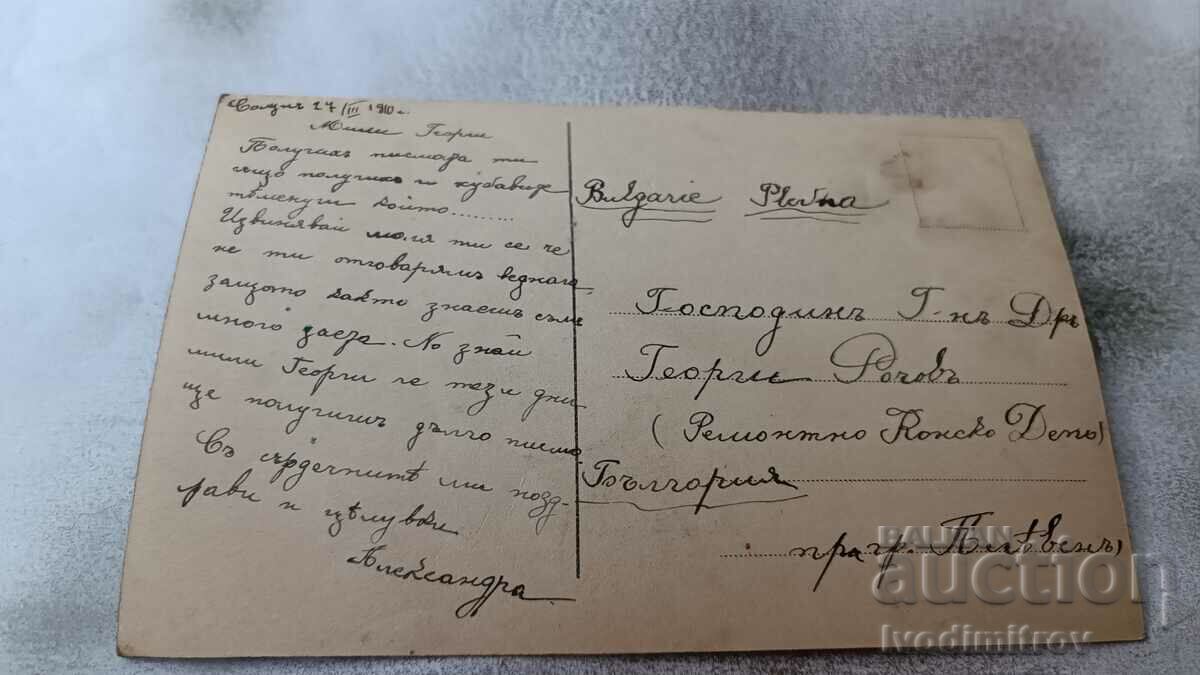 Солунъ 27/III 1910 г.
Мили Георги
Получихъ писмата ти
също получихъ и хубавите
тѣменуги който.........
Извинявай моля ти се че
не ти отговарямъ веднага
защото както знаешъ съмъ
много заета. Но знай
мили Георги че тези дни
ще получишъ дълго писмо.
Съ сърдечнитѣ ми позд-
рави и цѣлувки
Александра
Bulgarie Plevna
Господинъ Г-нъ Дръ
Георги Рочовъ
(Ремонтно Конско Депо)
България
гр. Плѣвенъ)
BALKAN
auction
Ivodimitrov